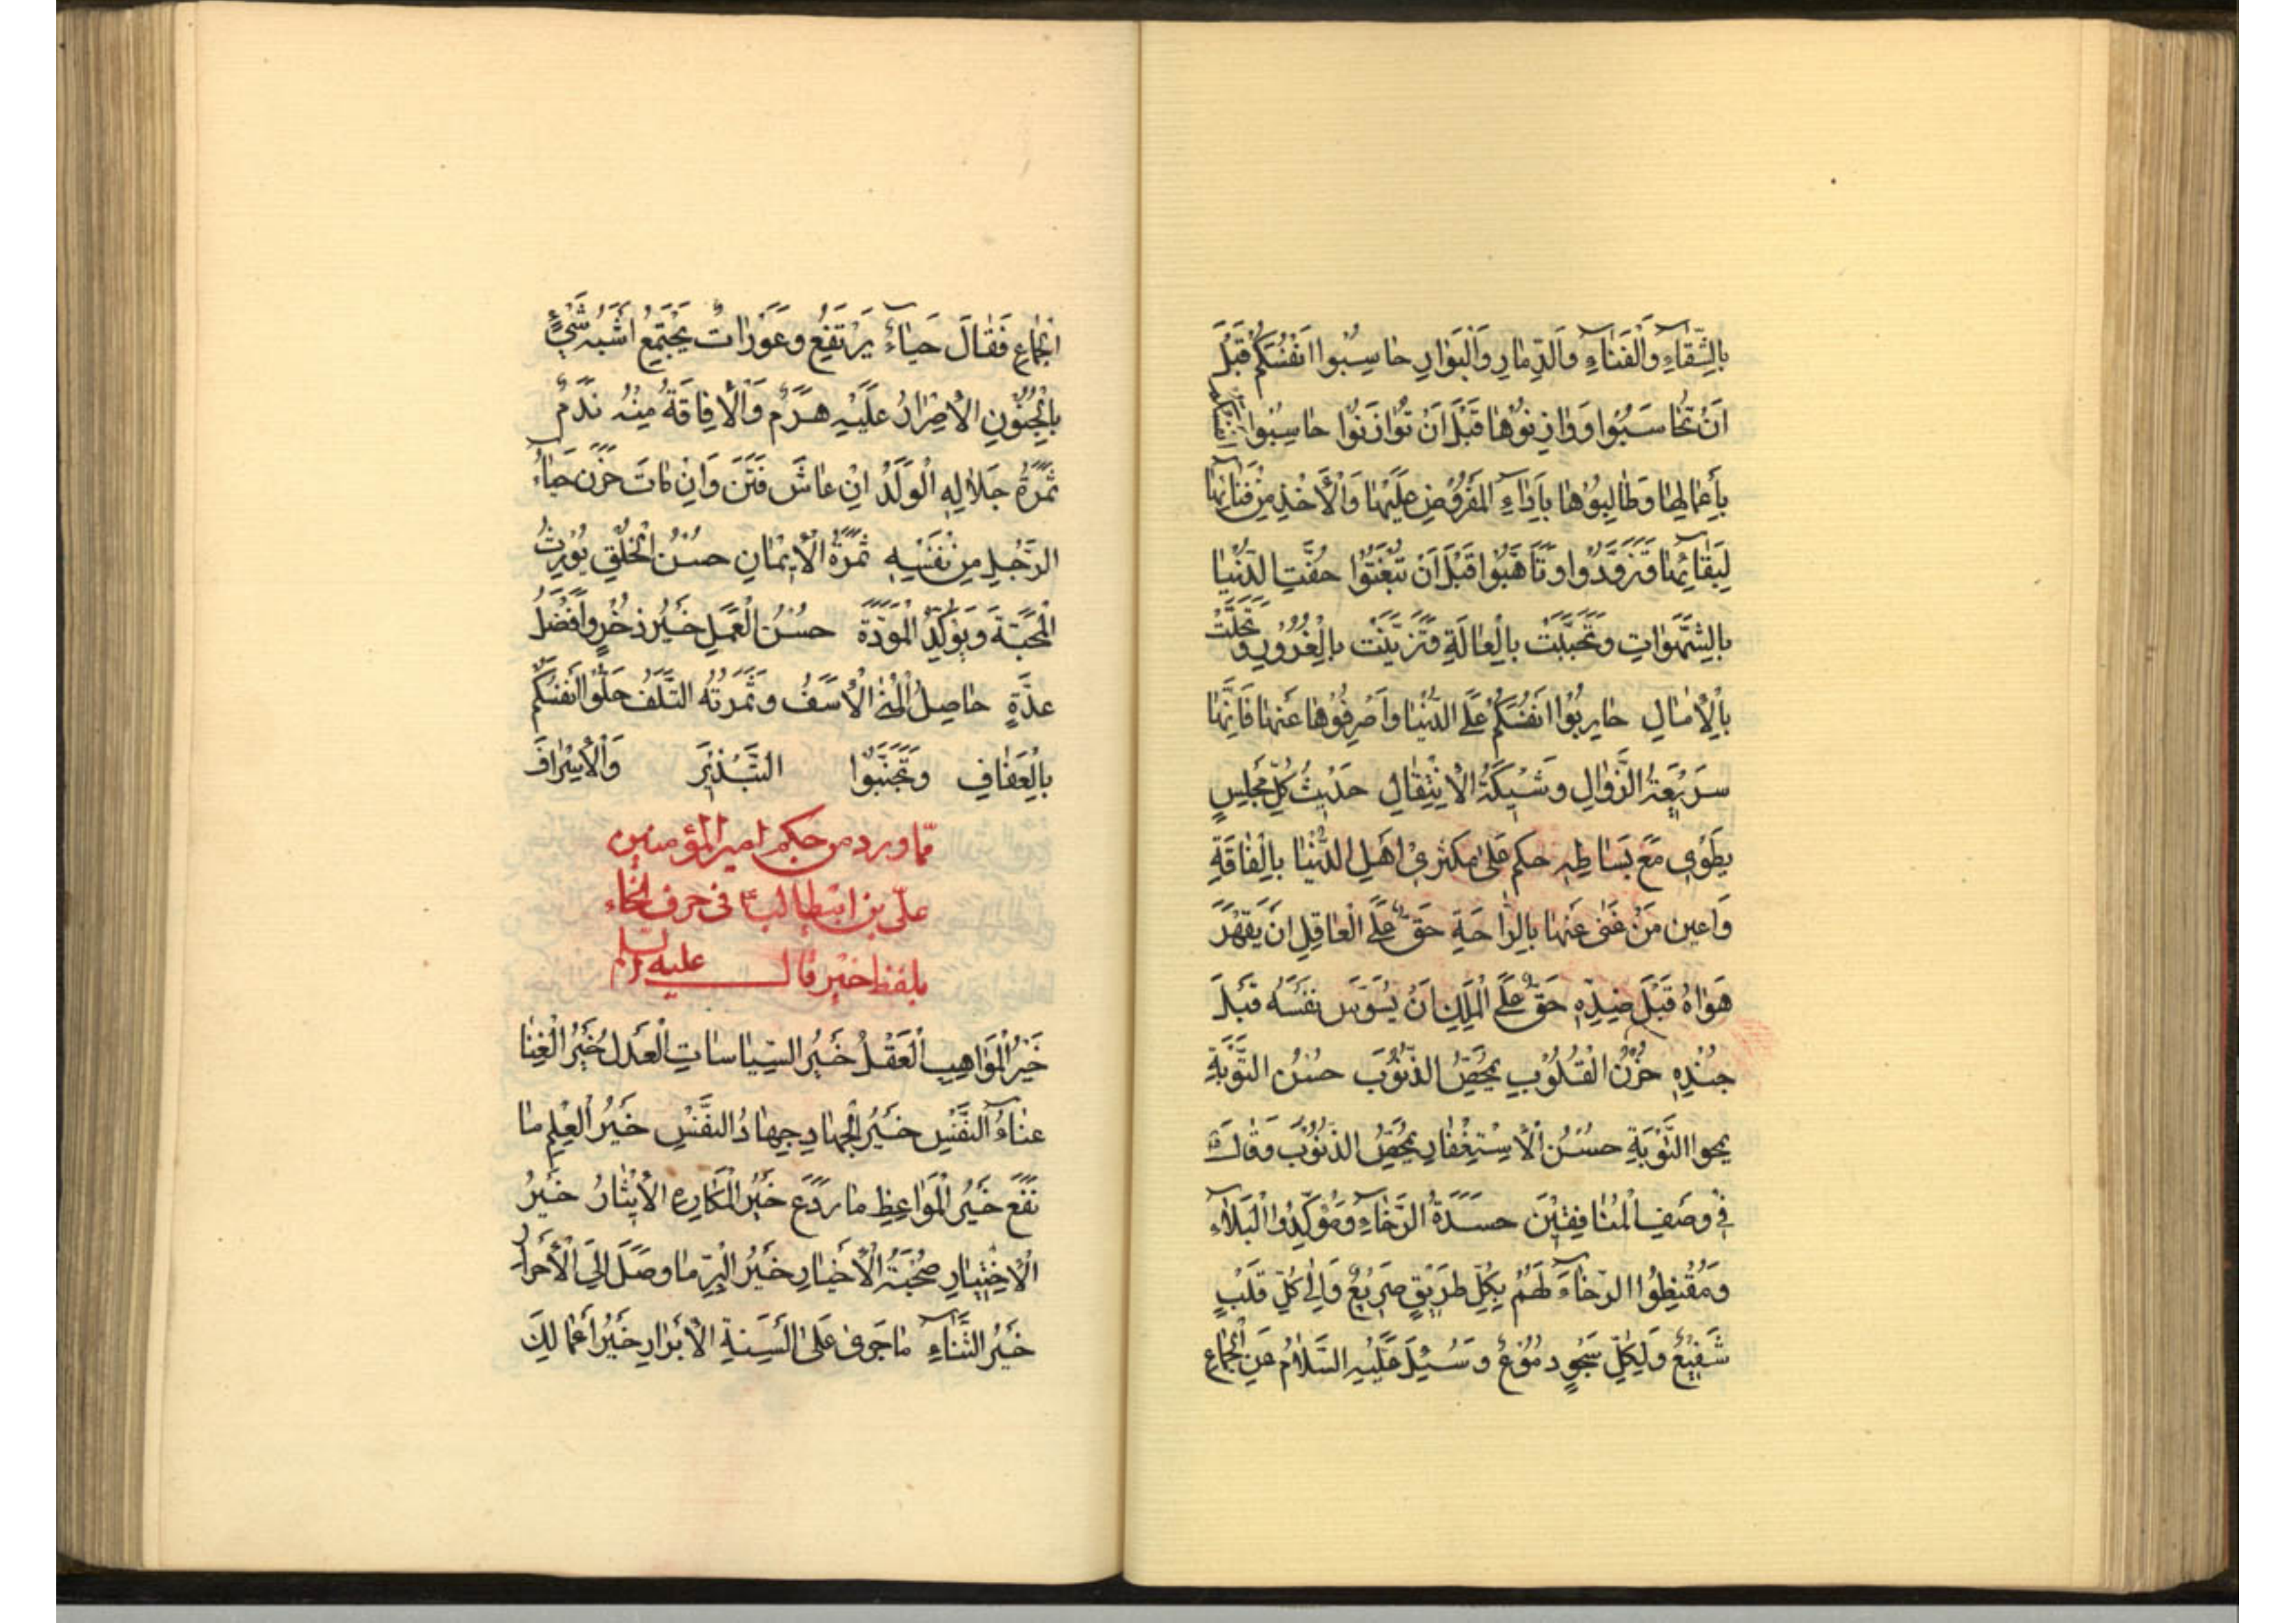 بِالشَّقَاءِ وَالْفَنَاءِ وَالدِّمَارِ وَالْبَوَارِ حَاسِبُوا اَنْفُسَكُمْ قَبْلَ
اَنْ تُحَاسَبُوا وَوَازِنُوهَا قَبْلَ اَنْ تُوَازَنُوا حَاسِبُوا اَنْفُسَكُمْ
بِأَعْمَالِهَا وَطَالِبُوهَا بِاَدَاءِ الْمَفْرُوضِ عَلَيْهَا وَالْأَخْذِ مِنْ فَنَائِهَا
لِبَقَائِهَا وَتَزَوَّدُوا وَتَاَهَّبُوا قَبْلَ اَنْ تُبْعَثُوا حُفَّتِ الدُّنْيَا
بِالشَّهَوَاتِ وَتَحَبَّبَتْ بِالْعَاجِلَةِ وَتَزَيَّنَتْ بِالْغُرُورِ وَتَحَلَّتْ
بِالْاٰمَالِ حَارِبُوا اَنْفُسَكُمْ عَلَى الدُّنْيَا وَاَصْرِفُوهَا عَنْهَا فَاِنَّهَا
سَرِيعَةُ الزَّوَالِ وَشِيكَةُ الْاِنْتِقَالِ حَدِيثُ كُلِّ مَجْلِسٍ
يُطْوٰى مَعَ بِسَاطِهِ حكم عَلٰى مكثري اَهْلِ الدُّنْيَا بِالْفَاقَةِ
وَاعين مَنْ غَنٰى عَنْهَا بِالرَّاحَةِ حَقٌّ عَلَى الْعَاقِلِ اَنْ يَقْهَرَ
هَوَاهُ قَبْلَ ضِدِّهِ حَقٌّ عَلَى الْمَلِكِ اَنْ يَسُوسَ نَفْسَهُ قَبْلَ
جُنْدِهِ حُزْنُ الْقُلُوبِ يُمَحِّصُ الذُّنُوبَ حُسْنُ التَّوْبَةِ
يمحوا التَّوْبَةِ حُسْنُ الْاِسْتِغْفَارِ يُمَحِّصُ الذُّنُوبَ وَقَالَ ؑ
فِي وَصْفِ الْمُنَافِقِينَ حَسَدَةُ الرَّخَاءِ وَمُؤَكِّدُوا الْبَلَاءِ
وَمُقْنِطُوا الرَّخَاءِ لَهُمْ بِكُلِّ طَرِيقٍ صَرِيعٌ وَاِلٰى كُلِّ قَلْبٍ
شَفِيعٌ وَلِكُلِّ شَجْوٍ دُمُوعٌ وَسُئِلَ عَلَيْهِ السَّلَامُ عَنِ الْجِمَاعِ
الْجِمَاعِ فَقَالَ حَيَاءٌ يَرْتَفِعُ وَعَوْرَاتٌ يَجْتَمِعُ اَشْبَهُ شَيْءٍ
بِالْجُنُونِ الْاِصْرَارُ عَلَيْهِ هَرَمٌ وَالْاِفَاقَةُ مِنْهُ نَدَمٌ
ثَمَرَةُ حَلَالِهِ الْوَلَدُ اِنْ عَاشَ فَتَنَ وَاِنْ مَاتَ حَزَنَ حَيَاءُ
الرَّجُلِ مِنْ نَفْسِهِ ثَمَرَةُ الْاِيمَانِ حُسْنُ الْخُلْقِ يُورِثُ
الْمَحَبَّةَ وَيُؤَكِّدُ الْمَوَدَّةَ حُسْنُ الْعَمَلِ خَيْرُ ذُخْرٍ وَاَفْضَلُ
عُدَّةٍ حَاصِلُ الْمُنٰى الْاَسَفُ وَثَمَرَتُهُ التَّلَفُ حَلُّوا اَنْفُسَكُمْ
بِالْعَفَافِ وَتَجَنَّبُوا التَّبْذِيرَ وَالْاِسْرَافَ
مما ورد من حكم امير المؤمنين
علي بن ابيطالب ؑ في حرف الخاء
بلفظ خير قال عليه السلم
خَيْرُ الْمَوَاهِبِ الْعَقْلُ خَيْرُ السِّيَاسَاتِ الْعَدْلُ خَيْرُ الْغِنَا
غِنَاءُ النَّفْسِ خَيْرُ الْجِهَادِ جِهَادُ النَّفْسِ خَيْرُ الْعِلْمِ مَا
نَفَعَ خَيْرُ الْمَوَاعِظِ مَا رَدَعَ خَيْرُ الْمَكَارِمِ الْاِيثَارُ خَيْرُ
الْاِخْتِيَارِ صُحْبَةُ الْاَخْيَارِ خَيْرُ الْبِرِّ مَا وَصَلَ اِلَى الْاَحْرَارِ
خَيْرُ الثَّنَاءِ مَا جَرٰى عَلٰى اَلْسِنَةِ الْاَبْرَارِ خَيْرُ اَعْمَالِكَ